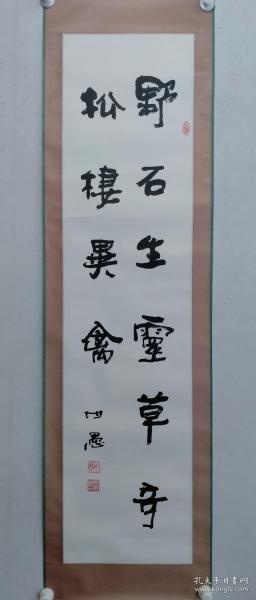 野石生靈草奇
松棲異禽
孔夫子旧书网
www.kongfz.com